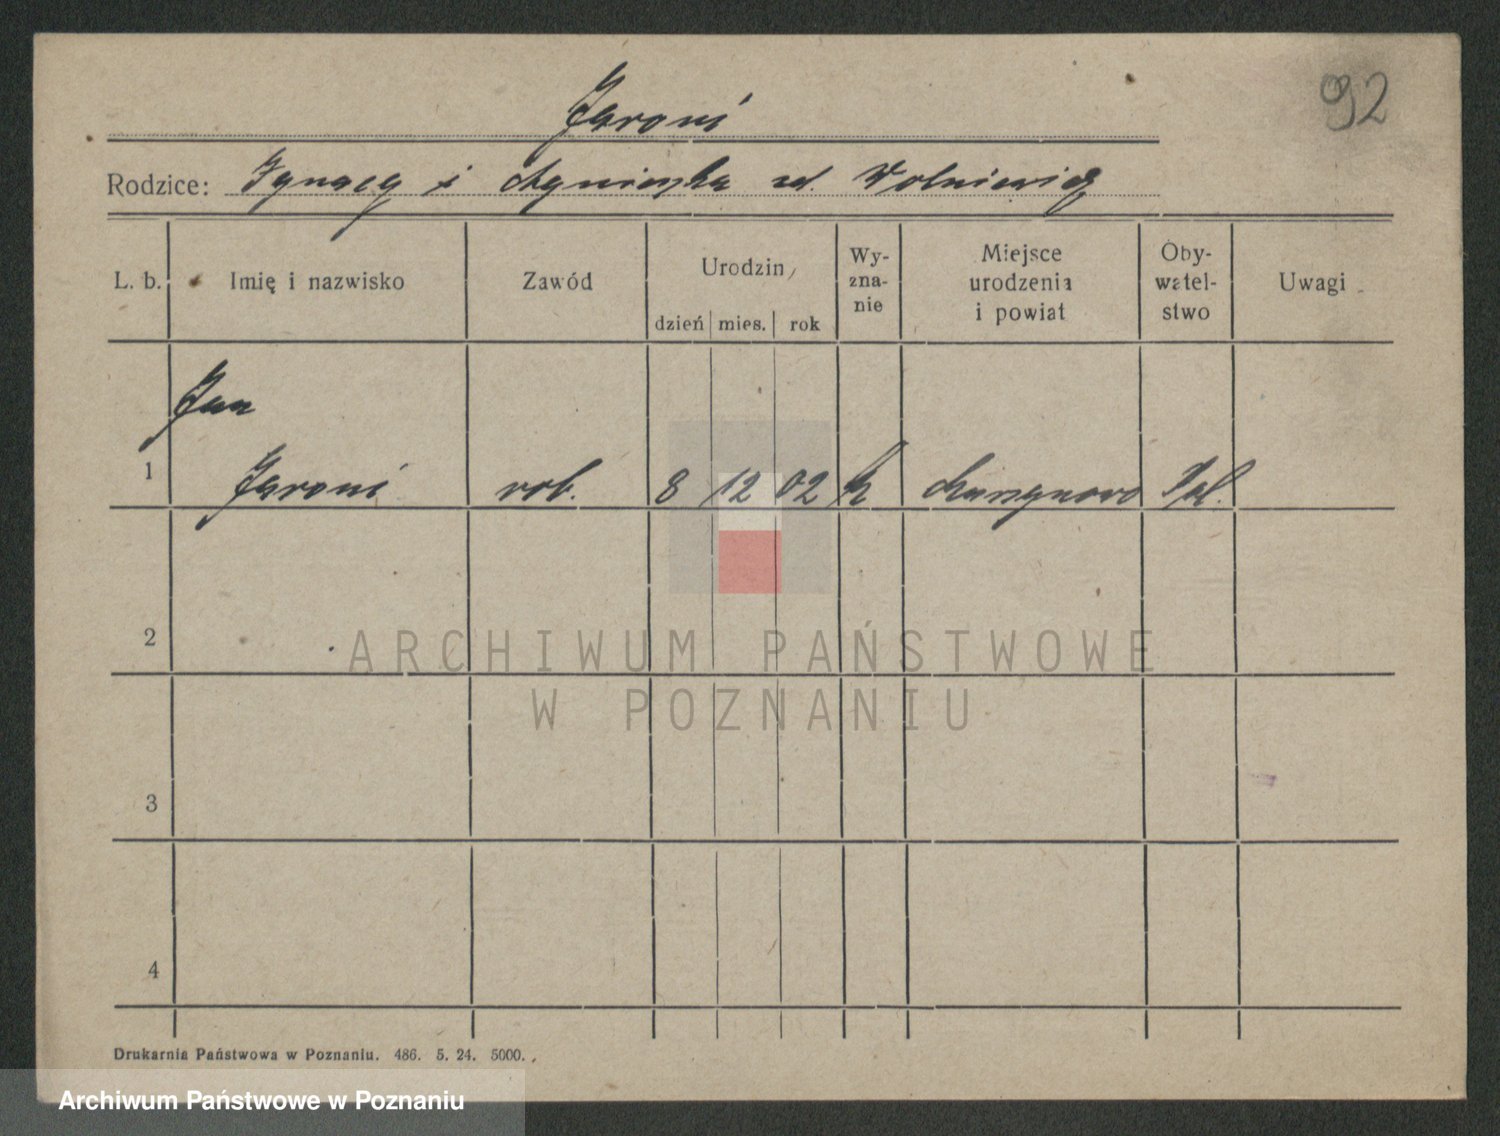 92
Jaroni
Rodzice: Ignacy i Agnieszka zd. Wolniewicz
L. b.
Imię i nazwisko
Zawód
Urodzin
dzień mies. rok
Wy-
zna-
nie
Miejsce
urodzenia
i powiat
Oby-
watel-
stwo
Uwagi
Jan
1 Jaroni rob. 8 12 02 k Pol.
2
3
4
ARCHIWUM PAŃSTWOWE
W POZNANIU
Drukarnia Państwowa w Poznaniu. 486. 5. 24. 5000.
Archiwum Państwowe w Poznaniu